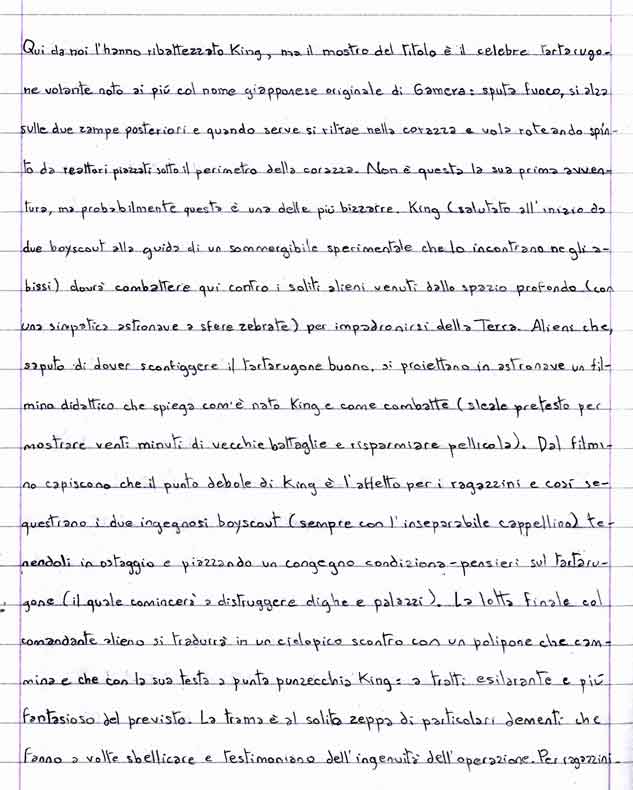 Qui da noi l'hanno ribattezzato King, ma il mostro del titolo è il celebre tartarugo-
ne volante noto ai più col nome giapponese originale di Gamera: sputa fuoco, si alza
sulle due zampe posteriori e quando serve si ritrae nella corazza e vola roteando spin-
to da reattori piazzati sotto il perimetro della corazza. Non è questa la sua prima avven-
tura, ma probabilmente questa è una delle più bizzarre. King (salutato all'inizio da
due boyscout alla guida di un sommergibile sperimentale che lo incontrano negli a-
bissi) dovrà combattere qui contro i soliti alieni venuti dallo spazio profondo (con
una simpatica astronave a sfere zebrate) per impadronirsi della Terra. Alieni che,
saputo di dover sconfiggere il tartarugone buono, si proiettano in astronave un fil-
mino didattico che spiega com'è nato King e come combatte (sleale pretesto per
mostrare venti minuti di vecchie battaglie e risparmiare pellicola). Dal filmi-
no capiscono che il punto debole di King è l'affetto per i ragazzini e così se-
questrano i due ingegnosi boyscout (sempre con l'inseparabile cappellino) te-
nendoli in ostaggio e piazzando un congegno condiziona-pensieri sul tartaru-
gone (il quale comincerà a distruggere dighe e palazzi). La lotta finale col
comandante alieno si tradurrà in un ciclopico scontro con un polipone che cam-
mina e che con la sua testa a punta punzecchia King: a tratti esilarante e più
fantasioso del previsto. La trama è al solito zeppa di particolari dementi che
fanno a volte sbellicare e testimoniano dell'ingenuità dell'operazione. Per ragazzini.